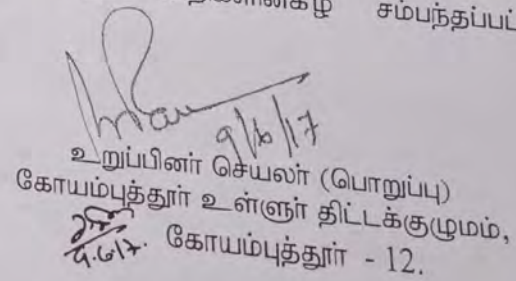 சம்பந்தப்பட்
9/6/17
உறுப்பினர் செயலர் (பொறுப்பு)
கோயம்புத்தூர் உள்ளூர் திட்டக்குழுமம்,
9.6.17. கோயம்புத்தூர் - 12.